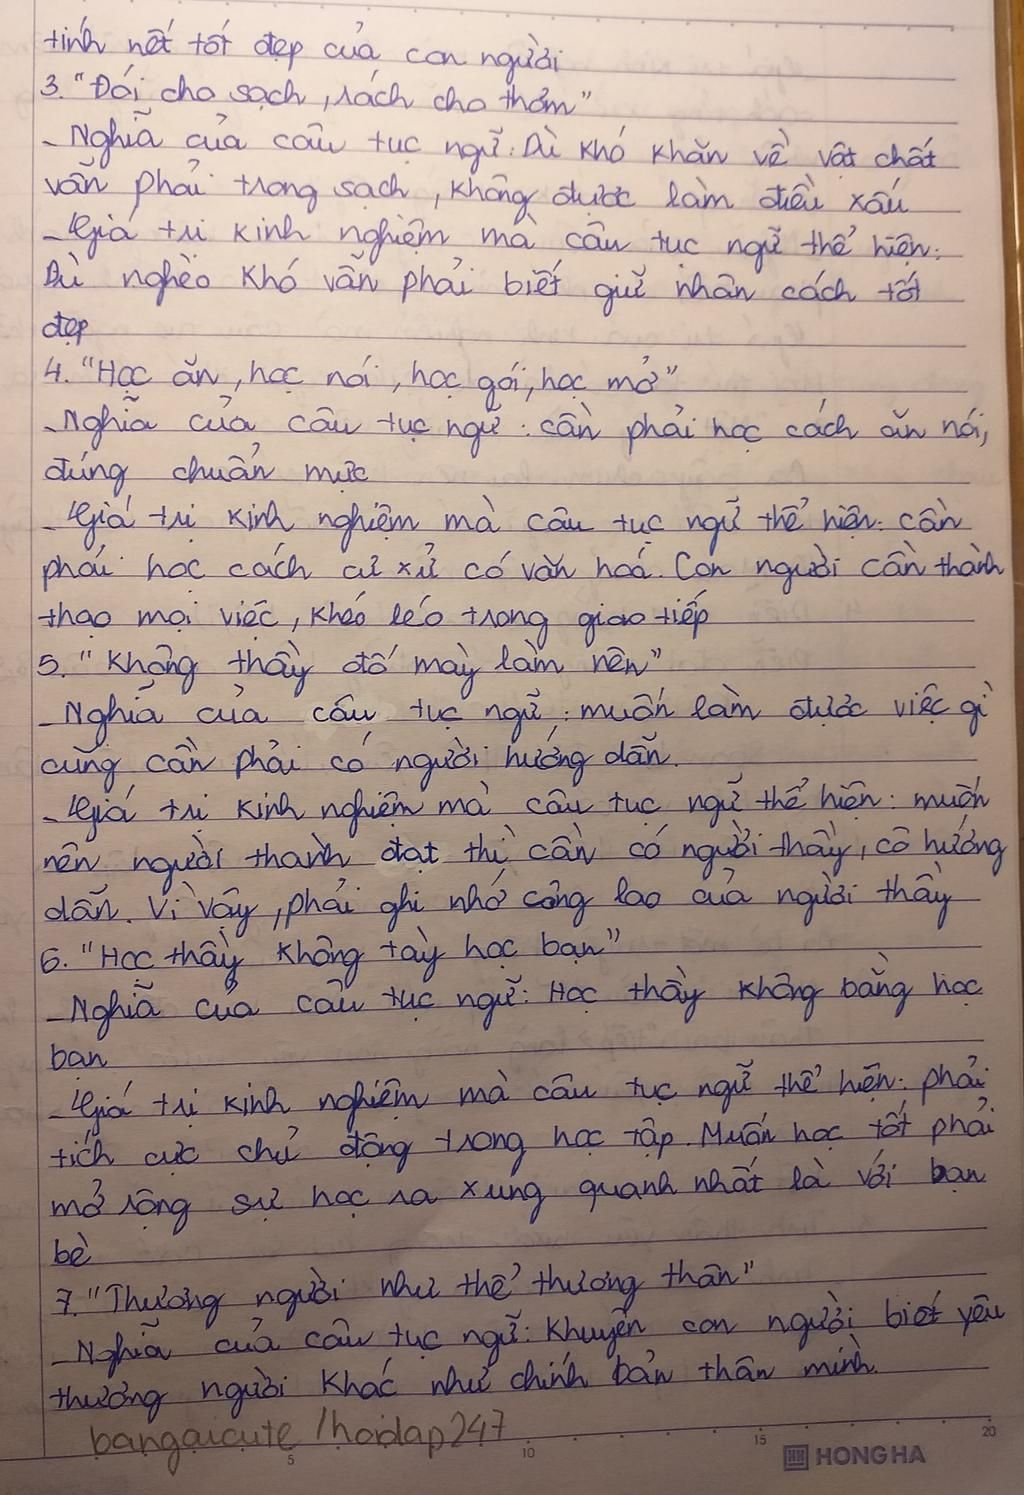 tính nết tốt đẹp của con người
3. "Đói cho sạch, rách cho thơm"
- Nghĩa của câu tục ngữ: Dù khó khăn về vật chất
vẫn phải trong sạch, không được làm điều xấu
- Giá trị kinh nghiệm mà câu tục ngữ thể hiện:
Dù nghèo khó vẫn phải biết giữ nhân cách tốt
đẹp
4. "Học ăn, học nói, học gói, học mở"
- Nghĩa của câu tục ngữ: cần phải học cách ăn nói,
đúng chuẩn mực
- Giá trị kinh nghiệm mà câu tục ngữ thể hiện: cần
phải học cách cư xử có văn hoá. Con người cần thành
thạo mọi việc, khéo léo trong giao tiếp
5. "Không thầy đố mày làm nên"
- Nghĩa của câu tục ngữ: muốn làm được việc gì
cũng cần phải có người hướng dẫn.
- Giá trị kinh nghiệm mà câu tục ngữ thể hiện: muốn
nên người thành đạt thì cần có người thầy, cô hướng
dẫn. Vì vậy, phải ghi nhớ công lao của người thầy
6. "Học thầy không tày học bạn"
- Nghĩa của câu tục ngữ: Học thầy không bằng học
bạn
- Giá trị kinh nghiệm mà câu tục ngữ thể hiện: phải
tích cực chủ động trong học tập. Muốn học tốt phải
mở rộng sự học ra xung quanh nhất là với bạn
bè
7. "Thương người như thể thương thân"
- Nghĩa của câu tục ngữ: Khuyên con người biết yêu
thương người khác như chính bản thân mình.
bangaicute /hoidap247
5 10 15 20
HH HONG HA